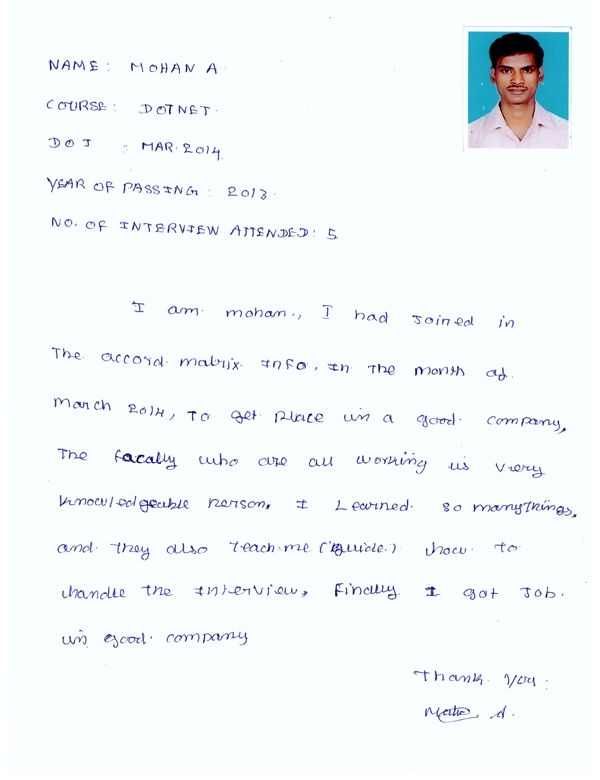 NAME: MOHAN A.
COURSE: DOTNET.
DOJ : MAR.2014
YEAR OF PASSING: 2013.
NO. OF INTERVIEW ATTENDED: 5
I am mohan., I had Joined in
The accord matrix Info, In the month of
March 2014, to get place in a good company,
The facally who are all working is very
knowledgeable person, I Learned so manythings,
and they also teach me (guide.) how to
handle the Interview, Finally I got Job.
in good company
Thank You.
A.